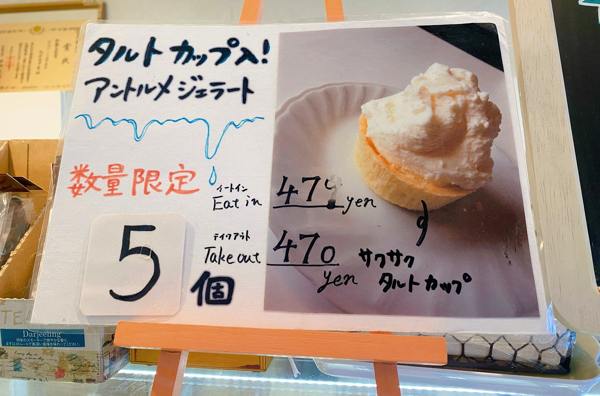 タルトカップ入!
アントルメジェラート
数量限定
5個
イートイン
Eat in 47 yen
テイクアウト
Take out 470 yen
サクサク
タルトカップ
Darjeeling